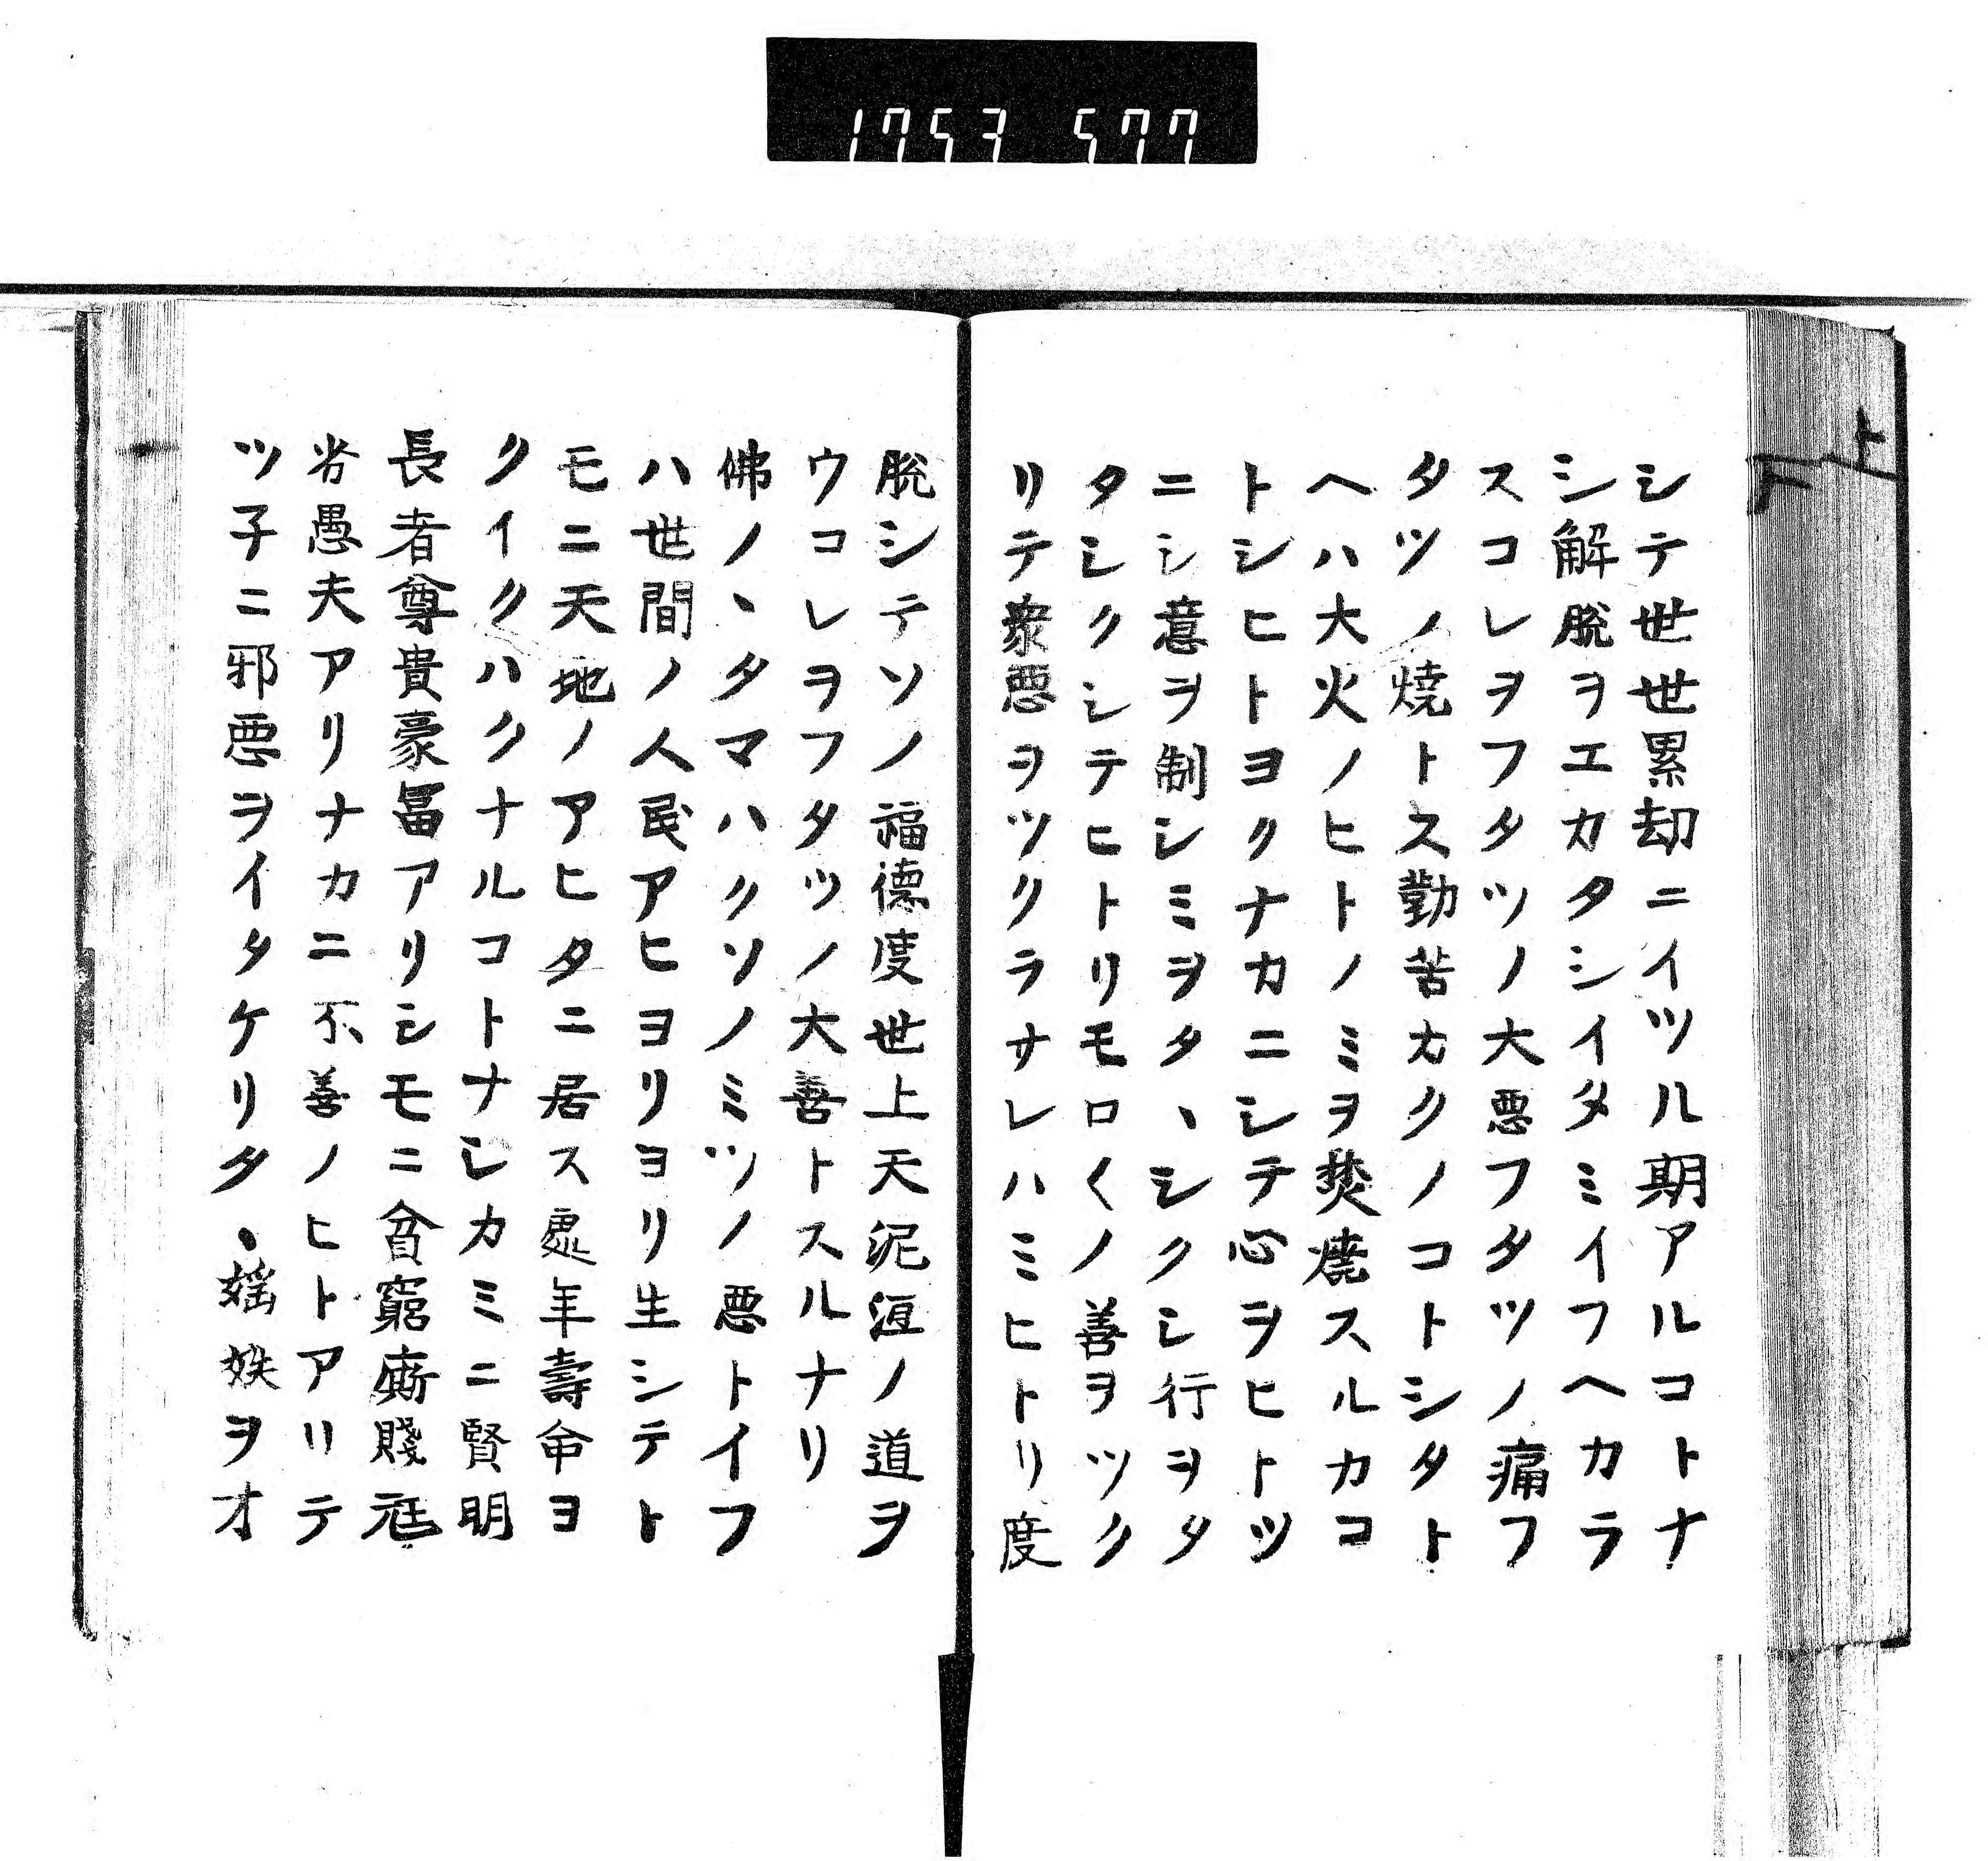 1753 577
上
下
シテ世世累却ニイツル期アルコトナ
シ解脱ヲエカタシイタミイフヘカラ
スコレヲフタツノ大悪フタツノ痛フ
タツノ燒トス勤苦カクノコトシタト
ヘハ大火ノヒトノミヲ焚燒スルカコ
トシヒトヨクナカニシテ心ヲヒトツ
ニシ意ヲ制シミヲタヽシクシ行ヲタ
タシクシテヒトリモロ〱ノ善ヲツク
リテ衆悪ヲツクラサレハミヒトリ度
脱シテソノ福德度世上天泥洹ノ道ヲ
ウコレヲフタツノ大善トスルナリ
佛ノヽタマハクソノミツノ悪トイフ
ハ世間ノ人民アヒヨリヨリ生シテト
モニ天地ノアヒタニ居ス處年壽命ヨ
クイクハクナルコトナシカミニ賢明
長者尊貴豪冨アリシモニ貧窮廝賤尫
劣愚夫アリナカニ不善ノヒトアリテ
ツ子ニ邪悪ヲイタケリタヽ婬妷ヲオ